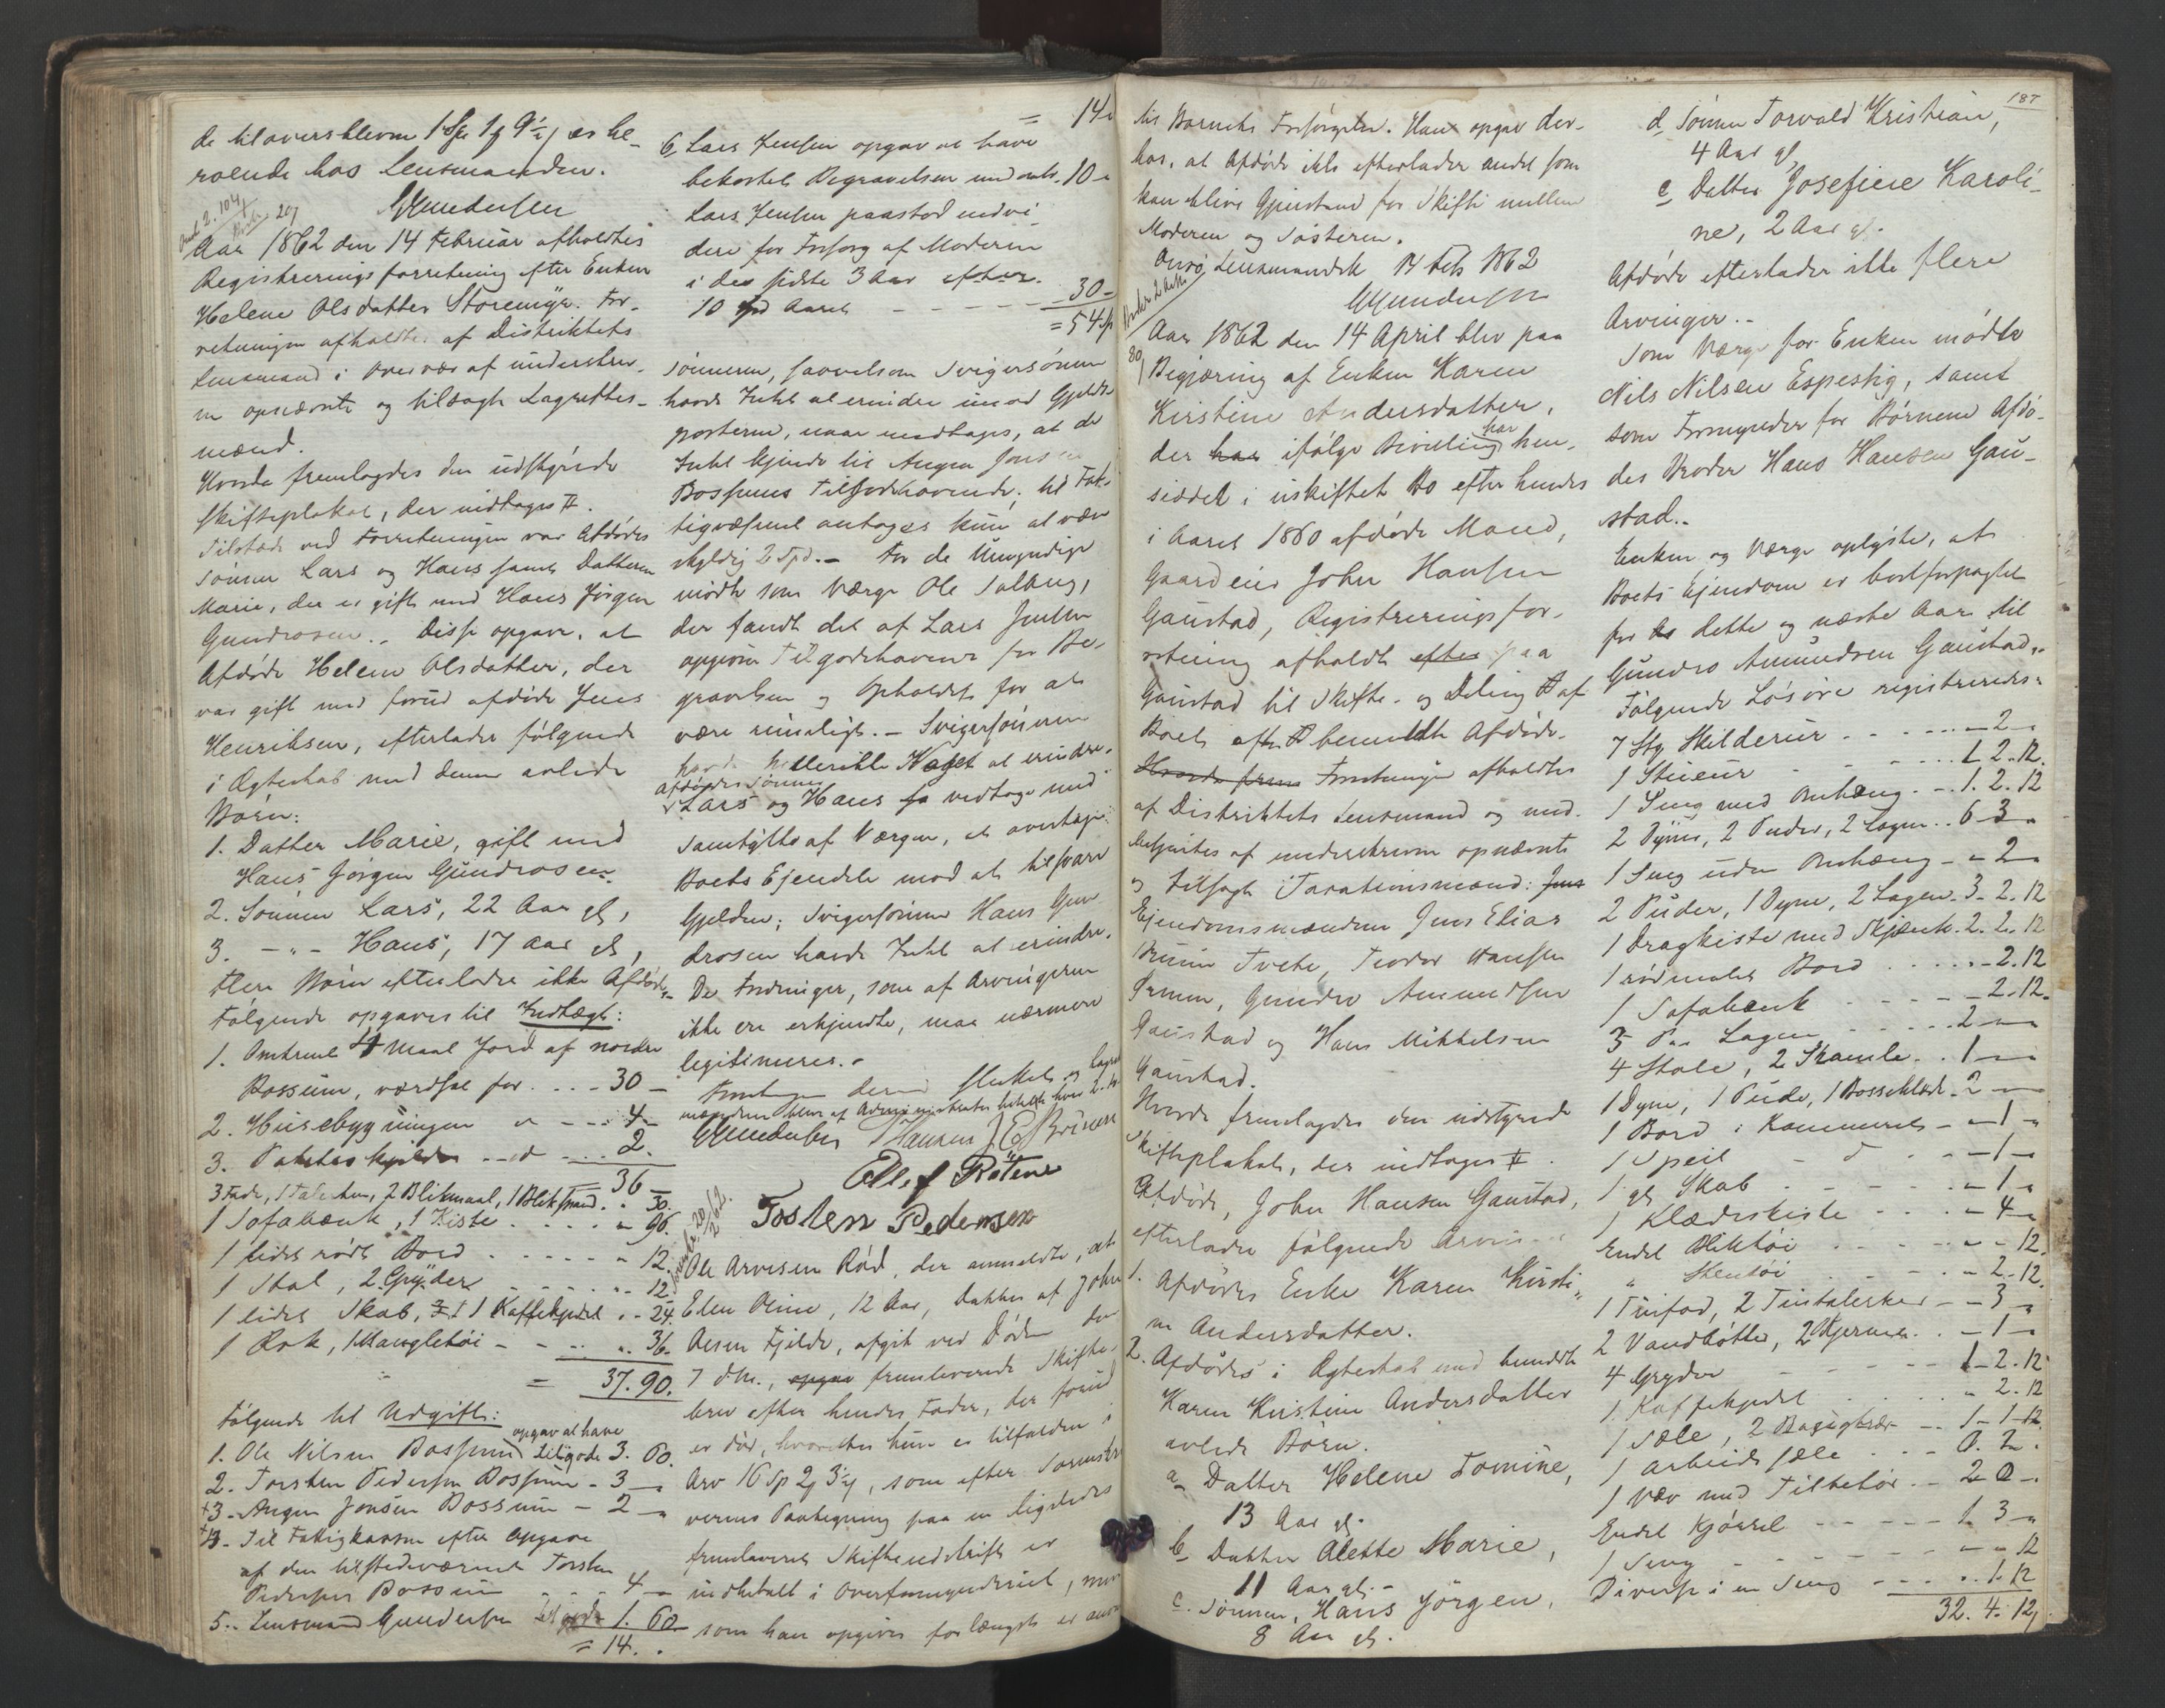 de tiloversblevne 1 Sp 1 9½ er be-
roende hos Lensmanden.
GGundersen
Aar 1862 den 14 Februar afholdtes
Registreringsforretning efter Enken
Helene Olsdatter Storemyr. For-
retningen afholdtes af Distriktets
Lensmand i Overvær af underskrev-
ne opnævnte og tilsagte Lagrettes-
mænd.
Hvorda fremlagdes den udstyrede
Skifteplakat, der indtages #.
Tilstede ved Forretningen var Afdødes
Sønner Lars og Hans samt Datteren
Marie, der er gift med Hans Jørgen
Gundrosen.. Disse opgave, at
Afdøde Helene Olsdatter, der
var gift med forud afdøde Jens
Henriksen, efterlader følgende
i Ægteskab med denne avlede
Børn:
1. Datter Marie, gift med
Hans Jørgen Gundrosen.
2. Sønnen Lars, 22 Aar gl,
3. - " - Hans, 17 aar gl,
Flere Børn efterlader ikke Afdøde.
Følgende opgaves til Indtægt:
1. Omtrent Maal Jord af nordre
Bossum, værdsat for . . . - 30 -
2. Husebygningen " - - . 4 -
3. . . 2.
36 -
3 Fade, 1 Talerken, 2 Blikmaal, 1 Blikspand . " 30.
1 Sofabænk, 1 Kiste . . . . " 96.
1 lidet rødt Bord . . . . . - 12.
1 Stol, 2 Gryder . . . . 12.
1 lidet Skab, 1 Kaffekjedel . - 24.
1 Rok, 1 Mangletøi - - . . " 36.
= 37. 90.
Følgende til Udgift:
opgav at have
1. Ole Nilsen Bossum tilgode 3. 60.
2. Torsten Pedersen Bossum - 3 -
3. Augen Jonsen Bossum - 2 -
4. Til Fattigkassen efter Opgave
af den tilstedeværende Torsten
Pedersen Bossum - - - 4 -
5.. Lensmand Gundersen 1. 60
= 14. .
= 14.
6, Lars Jensen opgav at have
bekostet Begravelsen med 10 -
Lars Jensen paastod endvi-
dere for Forsorg af Moderen
i de sidste 3 Aar efter
10 Spd Aaret - - - - 30 -
= 54 Sp
Sønnerne, saavelsom Svigersønnen
havde Intet at erindre imod Gjelds-
posterne, naar undtages, at de
Intet kjendte til Augen Jonsen
Bossums Tilgodehavende; til Fat-
tigvæsenet antages kun at være
skyldig 2 Spd. - For de Umyndige
mødte som Værge Ole Solberg,
der fandt det af Lars Jensen
opgivne Tilgodehavende for Be-
gravelsen og Opholdet for at
være rimeligt. - Svigersønnen
havde hellerikke Noget at erindre.
afdødes Sønner
Lars og Hans vedtoge med
Samtykke af Værgen, at overtage
Boets Ejendele mod at tilsvare
Gjelden; Svigersønnen Hans Gun-
drosen havde Intet at erindre.
De Fordringer, som af Arvingerne
ikke ere erkjendte, maa nærmere
legitimeres. -
Forretningen dermed sluttet og Lagret-
mændene blev af betalte hver 2.
GGundersen THansen J. E. Bruun
Ellef Röterne
Torsten Pedersen
Ole Arvesen Rød, der anmeldte, at
Elen Oline, 12 Aar, Datter af John
Olsen Fjelde, afgik ved Døden den
7 d.M., fremleverede Skifte-
brev efter hendes Fader, der forud
er død, hvorefter hun er tilfalden i
Arv 16 Sp 2 3, som efter Sorenskri-
verens Paategning paa en ligeledes
fremleveret Skifteudskrift er
indbetalt i Overformynderiet,
som han opgiver forlængst er anvendt
187
til Barnets Forsørgelse. Han opgav der-
hos, at Afdøde ikke efterlader andet som
kan blive Gjenstand for Skifte mellem
Moderen og Søsteren.
Onsø Lensmandsk 14 Feb 1862
GGundersen
Aar 1862 den 14 April blev paa
Begjæring af Enken Karen
Kirstine Andersdatter,
der ifølge Bevilling har hen-
siddet i uskiftet Bo efter hendes
i Aaret 1860 afdøde Mand,
Gaardeier John Hansen
Gaustad, Registreringsfor-
retning afholdt efter paa
Gaustad til Skifte- og Deling af
Boet efter benævnte Afdøde.
Hvorda frem Forretningen afholdtes
af Distriktets Lensmand og med-
betjentes af underskrevne opnævnte
og tilsagte Taxationsmænd: Jens
Ejendomsmændene Jens Elias
Bruun Tvete, Teodor Hansen
, Gundro Amundsen
Gaustad og Hans Mikkelsen
Gaustad.
Hvorda fremlagdes den udstyrede
Skifteplakat, der indtages #.
Afdøde, John Hansen Gaustad,
efterlader følgende Arvinger
1. Afdødes Enke Karen Kirsti-
ne Andersdatter.
2. Afdødes i Ægteskab med bemeldte
Karen Kirstine Andersdatter
avlede Børn.
a Datter Helene Tomine,
13 Aar gl.
b Datter Alette Marie,
11 Aar gl. -
c. Sønnen, Hans Jörgen,
8 Aar gl.
d Sønnen Torvald Kristian,
4 Aar gl,
e Datter Josefiene Karoli-
ne, 2 Aar gl.
Afdøde efterlader ikke flere
Arvinger..
Som Værge for Enken mødte
Nils Nilsen Espestig, samt
som Formynder for Børnene Afdø-
des Broder Hans Hansen Gau-
stad..
Enken og Værge oplyste, at
Boets Ejendom er bortforpagtet
for dette og næste Aar til
Gundro Amundsen Gaustad..
Følgende Løsøre registreredes:
7 Stg Skilderier . . . . . - 2 -
1 Stueur . . . . 1. 2. 12.
1 Seng med Omhæng . - . 1. 2. 12
2 Dyner, 2 Puder, 2 Lagen . . 6 3 "
1 Seng uden Omhæng - - 2 -
2 Puder, 1 Dyne, 2 Lagen - 3 - 2. 12
1 Dragkiste med Skjænk . 2. 2. 12
1 rødmalet Bord . . . . . - 2. 12
1 Sofabænk . . . . - 2. 12.
3 Par Lagen . . . . . 2 -
4 Stole, 2 Skamle . . 1 -
1 Dyne, 1 Pude, 1 Bosseklæde - 2 -
1 Bord i Kammeret - - 1 -
1 Speil - d - - 1 -
1 gl Skab . . . - 1 -
1 Klædeskiste . . . - 4 -
Endel Bliktøi . . . . - - 12.
" Stentøi . . . . - 2. 12.
1 Tinfad, 2 Tintalerker - - 3 -
2 Vandbøtter, 2 Kjerner . . - 1 -
4 Gryder - - - - - 1 - 2. 12
1 Kaffekjedel . . . . " 2. 12
1 Sæle, 2 - . 1 - 1 - 12
1 Arbeidssæle - - - 0. 2 .
1 Væv med Tilbehør . - 2 0 -
Endel Kjørrel - - - - - 1. 3 -
1 Seng - - - - - - - - 12
Diverse i en Seng - - - . . 1. 12
32. 4. 12,